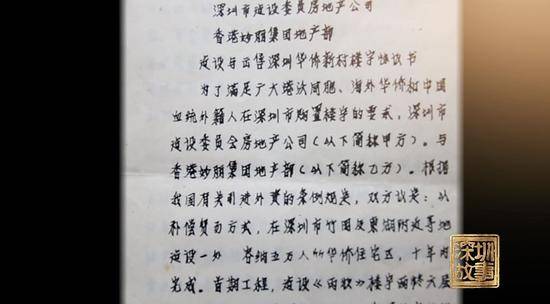 深圳市建设委员房地产公司
香港妙丽集团地产部
建设与出售深圳华侨新村楼宇协议书
为了满足广大港澳同胞、海外华侨和中国
血统外籍人在深圳市购置楼宇的要求,深圳市
建设委员会房地产公司(以下简称甲方)。与
香港妙丽集团地产部(以下简称乙方)。根据
我国有关引进外资的条例规定,双方议定:以
补偿贸易方式,在深圳市竹园及翠湖附近等地
建设一处 容纳五万人的华侨住宅区,十年内
完成。首期工程,建设《丙钦》楼宇两楼六层
深圳
故事